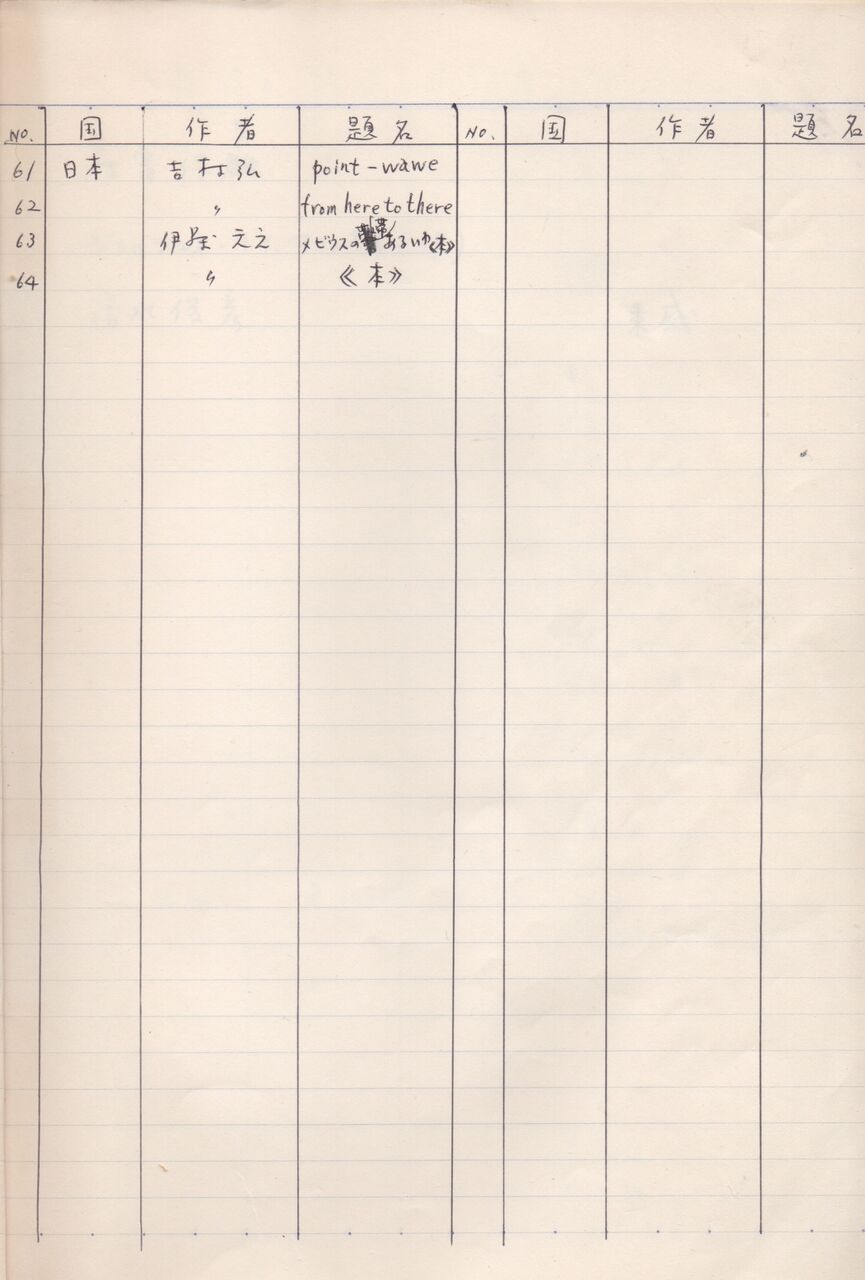 NO. 国 作者 題名 NO. 国 作者 題名
61 日本 吉村弘 point-wawe
62 〃 from here to there
63 伊 元之 メビウスの帯あるいわ《本》
64 〃 《本》